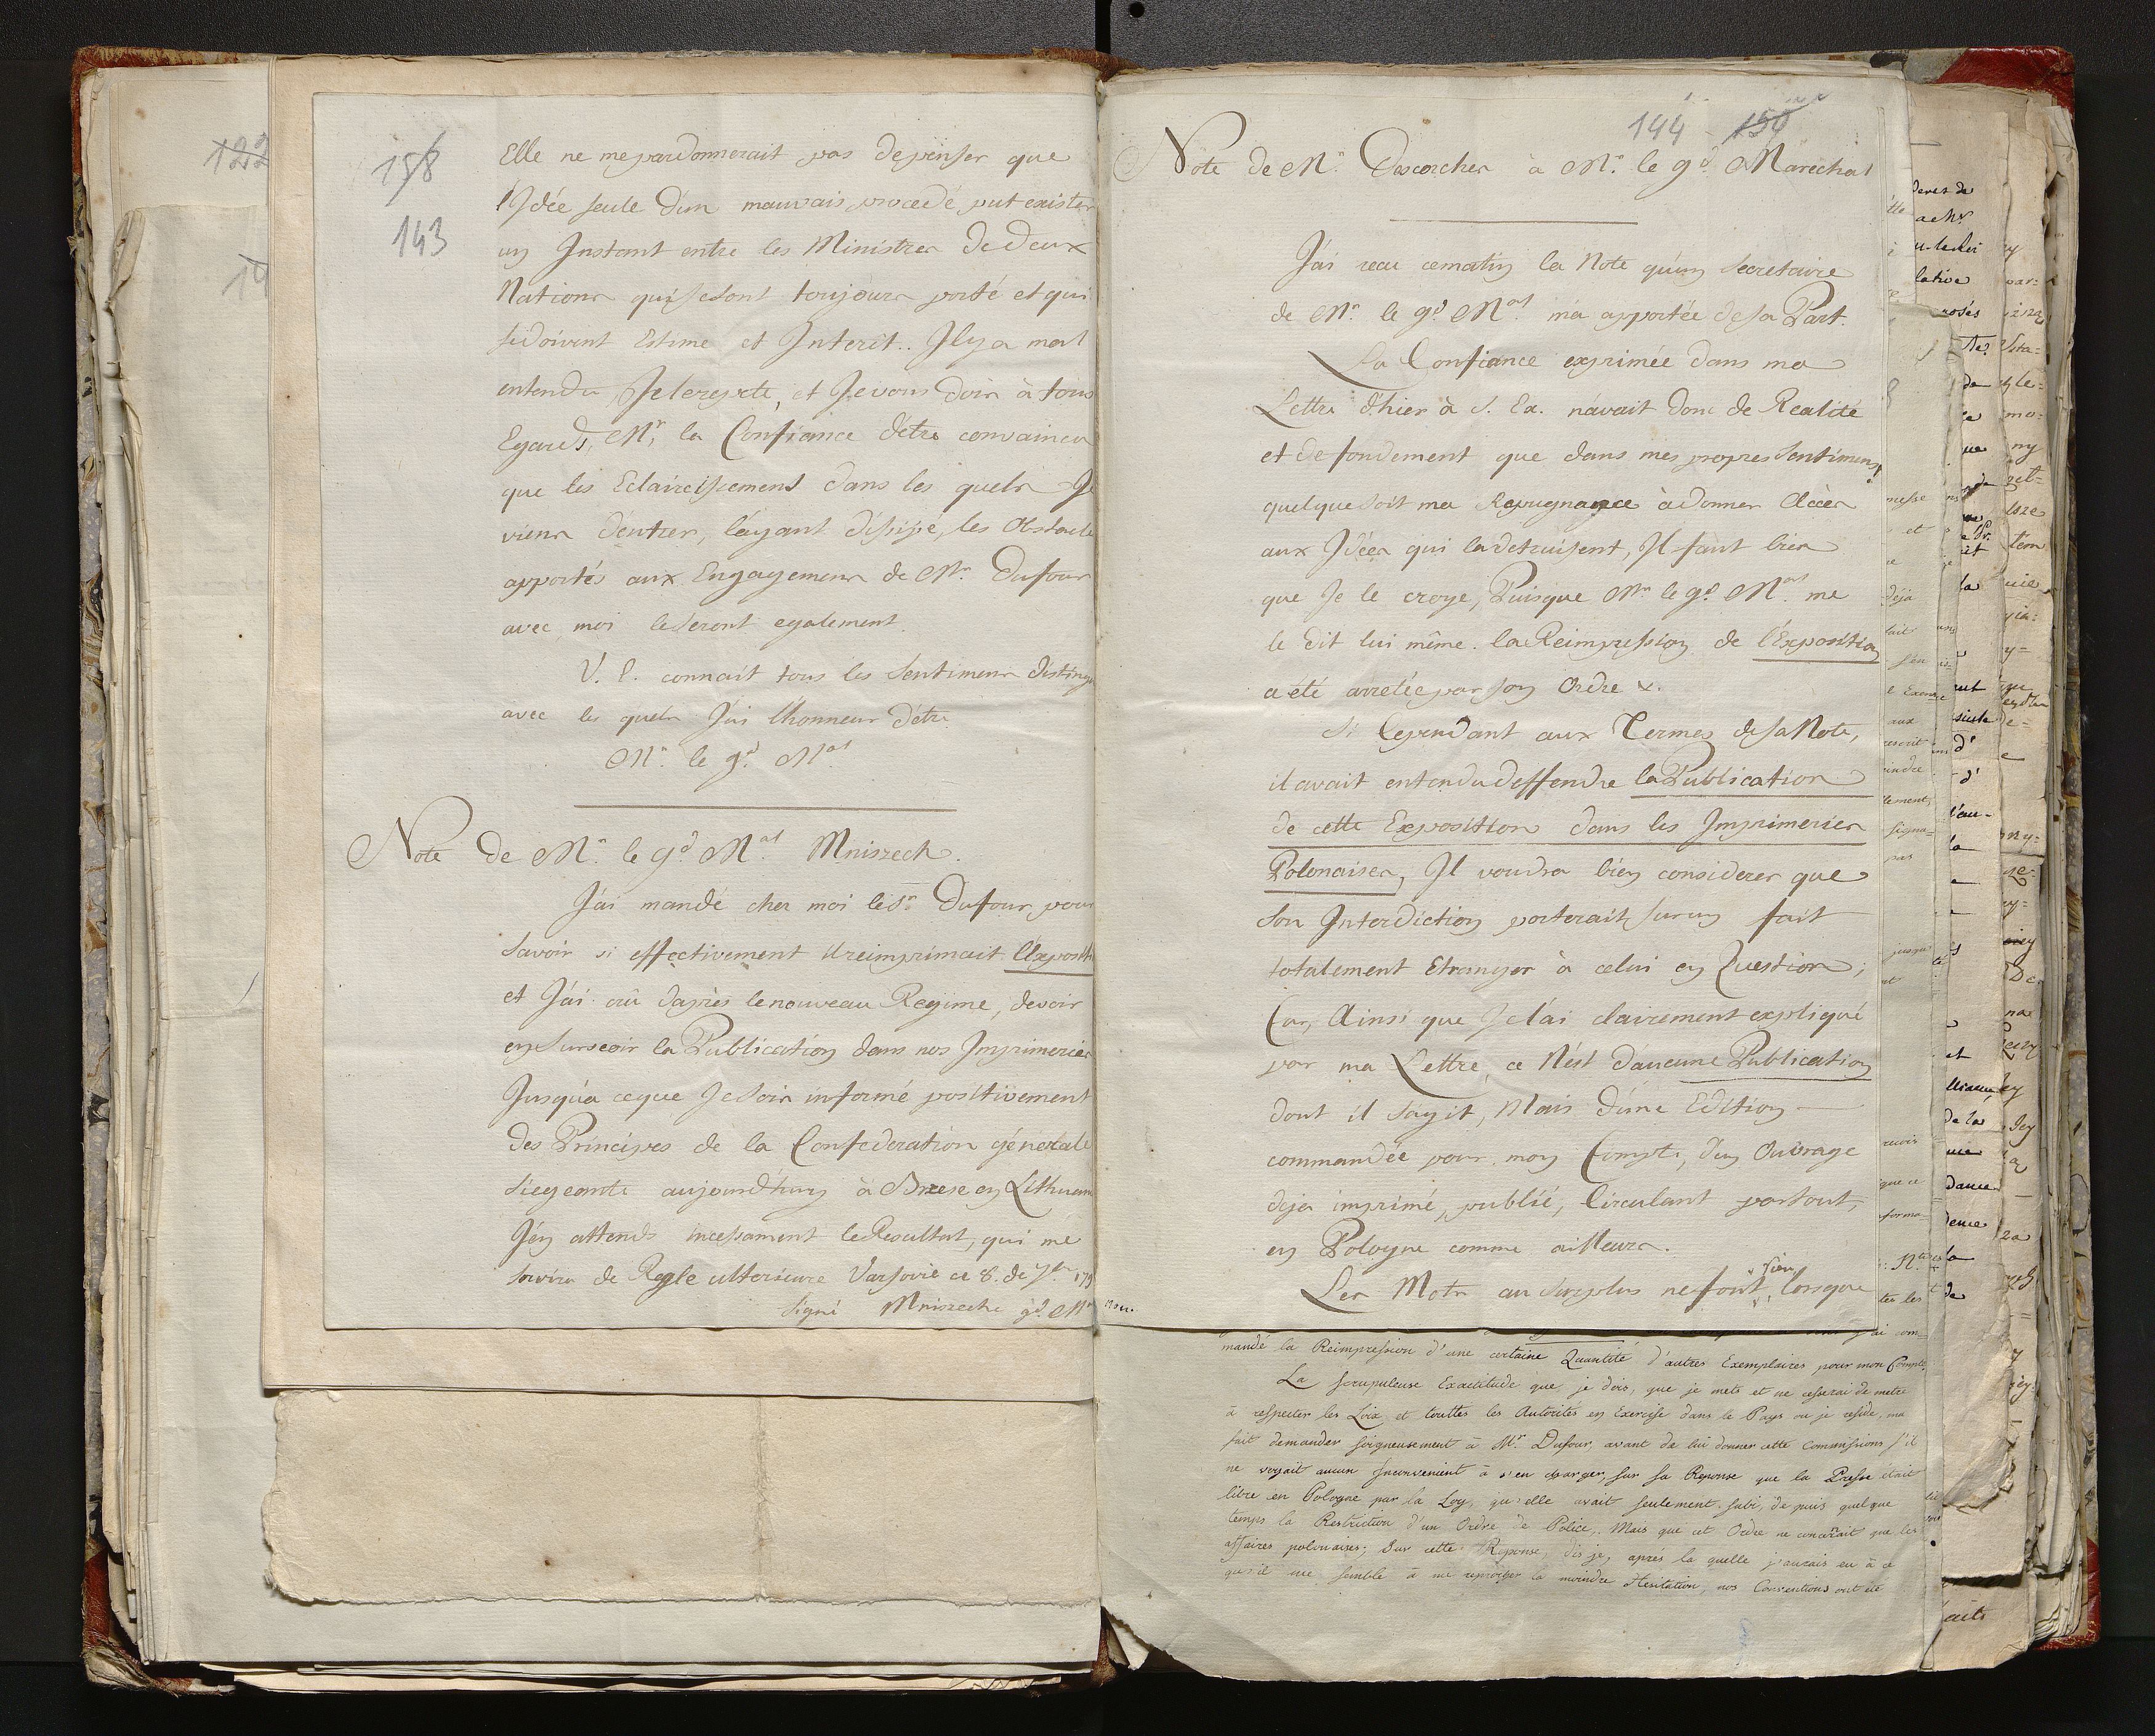 122
14
158
143
Elle ne me pardonnerait pas de penser que
l'Idée seule d'un mauvais procedé put exister
un Instant entre les Ministres de deux
Nations qui se sont toujours porté et qui
se doivent Estime et Interêt.. Il y a mal
entendu, Je le repete, et Je vous dois à tous
Egards, Mr. la Confiance d'être convaincu
que les Eclaircissemens dans les quels Je
viens d'entrer, l'ayant dissipé, les Obstacle
apportés aux Engagemens de Mr. Dufour
avec moi le seront egalement.
V. E. connait tous les Sentimens disting
avec les quels J'ai l'honneur d'être
Mr. le gd. Mal.
Note de Mr. le gd. Mal. Mniszech.
J'ai mandé chez moi le Sr. Dufour pour
savoir si effectivement il reimprimait l'Expositi
et J'ai crû d'après le nouveau Regime, devoir
en surseoir la Publication dans nos Imprimeries
Jusqu'a ceque Je sois informé positivement
des Principes de la Confederation génerale
siegeante aujourd'huy à Brzesc en Lithuan
J'en attends incessament le Resultat, qui me
servira de Regle ulterieure Varsovie ce 8. de 7br 179
signé Mniszech gd. Mal
144 - 159
Note de Mr. Descorches à Mr. le gd. Marechal
J'ai recu cematin la Note qu'un Secretaire
de Mr. le gd. Mal. m'a apportée de sa Part.
La Confiance exprimée dans ma
Lettre d'hier à S. Ex. n'avait donc de Realité
et de fondement que dans mes propres Sentimens,
quelque soit ma Repugnance à donner Accès
aux Idées qui la detruisent, Il faut bien
que Je le croye, Puisque Mr. le gd. Mal. me
le dit lui même. la Reimpression de l'Exposition
a été arretée par son Ordre &.
Si Cependant aux Termes de sa Note,
il avait entendu deffendre la Publication
de cette Exposition dans les Imprimeries
Polonaises, Il voudra bien considerer que
son Interdiction porterait sur un fait
totalement Etranger à celui en Question;
Car, Ainsi que Je l'ai clairement expliqué
par ma Lettre, ce N'est d'aucune Publication
dont il s'agit, Mais d'une Edition —
commandée pour mon Compte, d'un Ouvrage
deja imprimé, publié, Circulant partout,
en Pologne comme ailleurs.
Les Mots au surplus ne font rien, lorsque
mandé la Reimpression d'une certaine Quantité d'autres Exemplaires pour mon Compte,
La scrupuleuse Exactitude que je dois, que je mets et ne cesserai de metre
à respecter les Loix et touttes les Autorités en Exercise dans le Pays ou je reside, ma
fait demander soigneusement à Mr. Dufour, avant de lui donner cette Commissions s'il
ne voyait aucun Inconvenient à s'en charger, sur sa Reponse que la Presse était
libre en Pologne par la Loy, qu'elle avait seulement subi, de puis quelque
temps la Restriction d'un Ordre de Police, Mais que cet Ordre ne concernait que les
affaires polonaises; Sur cette Reponse, dis je, aprés la quelle j'aurais eu à ce
qu'il me semble à me reprocher la moindre Hesitation, nos Conventions ont été